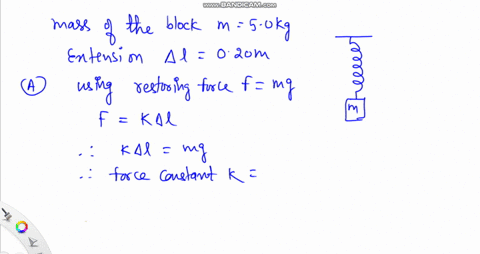 WWW.BANDICAM.COM
mass of the block m = 5.0kg
Extension Δl = 0.20m
(A) using restoring force f = mg
F = KΔl
∴ KΔl = mg
∴ force constant K =
m